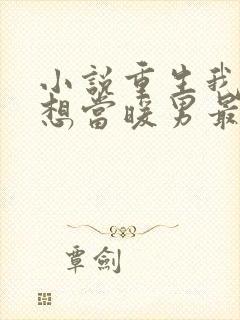 小說重生我
想當暖男最
覃劍